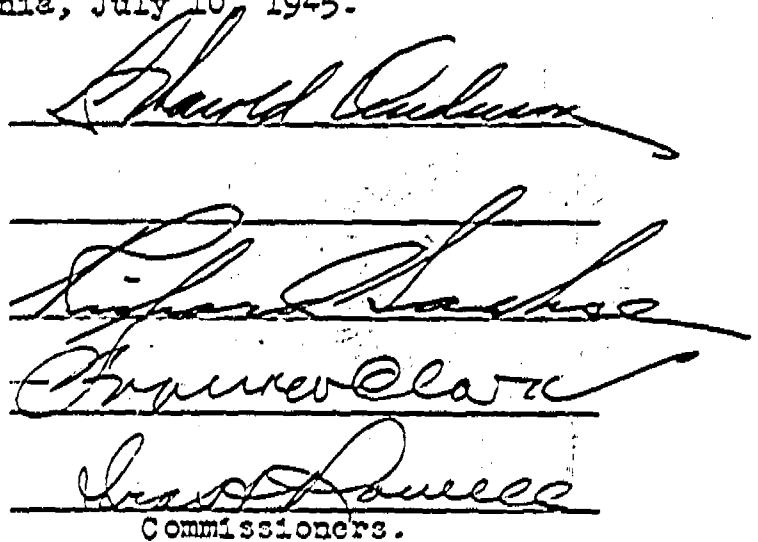 nia, July 10, 1945.
Harold Anderson
Richard Sachse
Clark
Ira H Rowell
Commissioners.